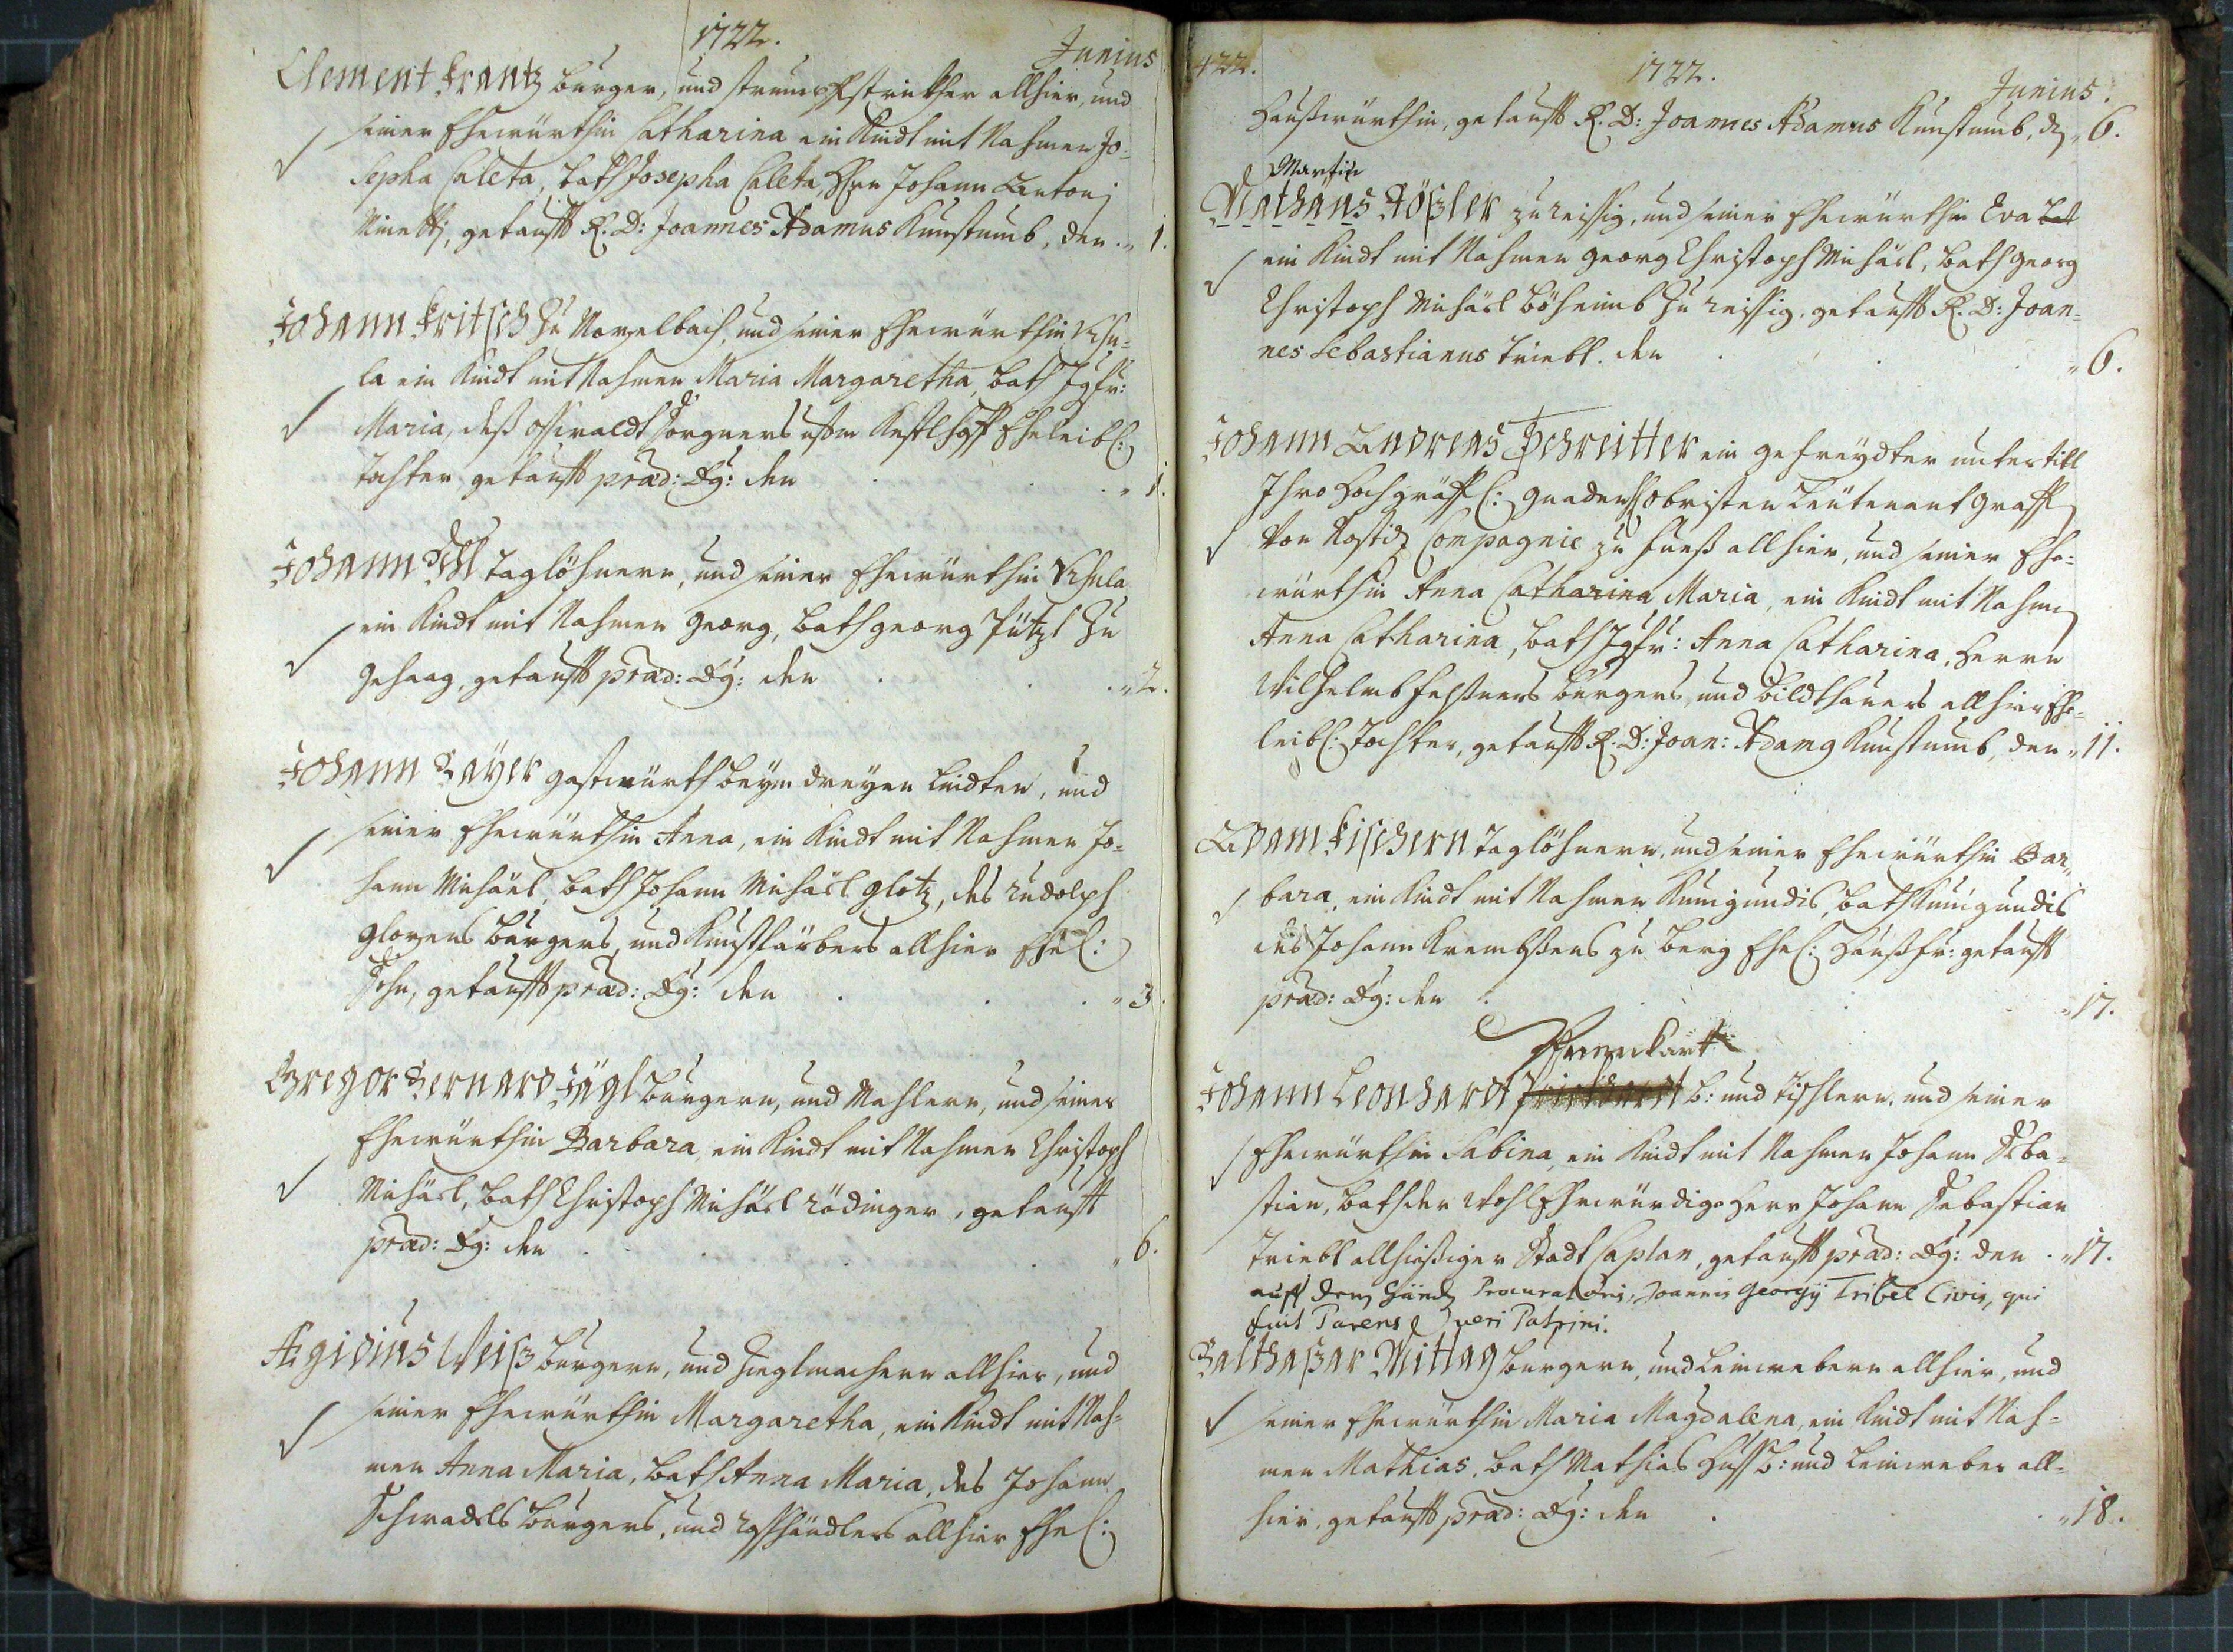 1722.
Junius
Clement Frantz burger, und strumpfstrickher allhier, und
seiner Ehewürthin Catharina ein Kindt mit Nahmen Jo-
sepha Caleta, bath Josepha Caleta, Hrn Johann Antonj
Minetti, getaufft R. D: Joannes Adamus Kunstumb, den „ 1.
Johann Fritsch Zu und seiner Ehewürthin Ursu-
la ein Kindt mit Nahmen Maria Margaretha, bath Jgfr:
Maria, deß Oßwaldt Sorgners Eheleibl:
tochter getaufft præd: Dg: den . . „ 1.
Johann Taglöhnern, und seiner Ehewürthin Ursula
ein Kindt mit Nahmen Georg, bath Georg Pützl Zu
Gehaag, getaufft præd: Dg: den . . . „ 2.
Johann Bayer gastwürth beym dreyen Lindten, und
seiner Ehewürthin Anna, ein Kindt mit Nahmen Jo-
hann Michäel, bath Johann Michäel Glotz, des Rudolph
Glozens burgers, und Kunstfärbers allhier Ehel:
Sohn, getaufft præd: Dg: den . . . „ 3.
Gregor Bernard Jägl burgern, und Mahlern, und seiner
Ehewürthin Barbara, ein Kindt mit Nahmen Christoph
Michäel, bath Christoph Michäel Rödinger, getaufft
præd: Dg: den . . . . „ 6.
Ægidius Weiß burgern, und Zieglmachern allhier, und
seiner Ehewürthin Margaretha, ein Kindt mit Nah-
men Anna Maria, bath Anna Maria, des Johann
Schwadels burgers, und allhier Ehel:
422.
1722.
Junius.
Haußwürthin, getaufft R. D: Joannes Adamus Kunstumb, d „ 6.
Martin
Mathäus Rößler zu reissig, und seiner Ehewürthin Eva bat
ein Kindt mit Nahmen Georg Christoph Michäel, bath Georg
Christoph Michäel Böheimb Zu reissig, getaufft R. D: Joan-
nes Sebastianus Triebl. den . . . „ 6.
Johann Andreas Schreitter ein gefreydter unter titl
Ihro Hochgräffl: Gnaden H obristen Leutenant Graff
Von Nostiz Compagnie zu fueß allhier, und seiner Ehe-
würthin Anna Catharina Maria, ein Kindt mit Nahmen
Anna Catharina, bath Jgfr: Anna Catharina, Herrn
Wilhelmb burgers, und bildthauers allhier Ehe-
leibl: Tochter, getaufft R. D: Joan: Adamg Kunstumb, den „ 11.
Adam Fischern Taglöhnern, und seiner Ehewürthin Bar-
bara, ein Kindt mit Nahmen Kunigundis, bath Kunigundis
des Johann Krembßens zu Berg Ehel: Haußfr: getaufft
præd: Dg: den . . . . „ 17.
Johann Leonhardt b: und Tischlern, und seiner
Ehewürthin Sabina, ein Kindt mit Nahmen Johann Seba-
stian, bath der WohlEhrwürdige Herr Johann Sebastian
Triebl allhießiger Stadt Caplan, getaufft præd: Dg: den . „ 17.
auff den Händ Procuratoris, Joannis Georgij Tribel Civis, qui
fuit Parens veri Patrini.
Balthaßar Mittag burgern, und Leinwebern allhier, und
seiner Ehewürthin Maria Magdalena, ein Kindt mit Nah-
men Mathias, bath Mathias Huß b: und Leinweber all-
hier, getaufft præd: Dg: den . . „ 18.